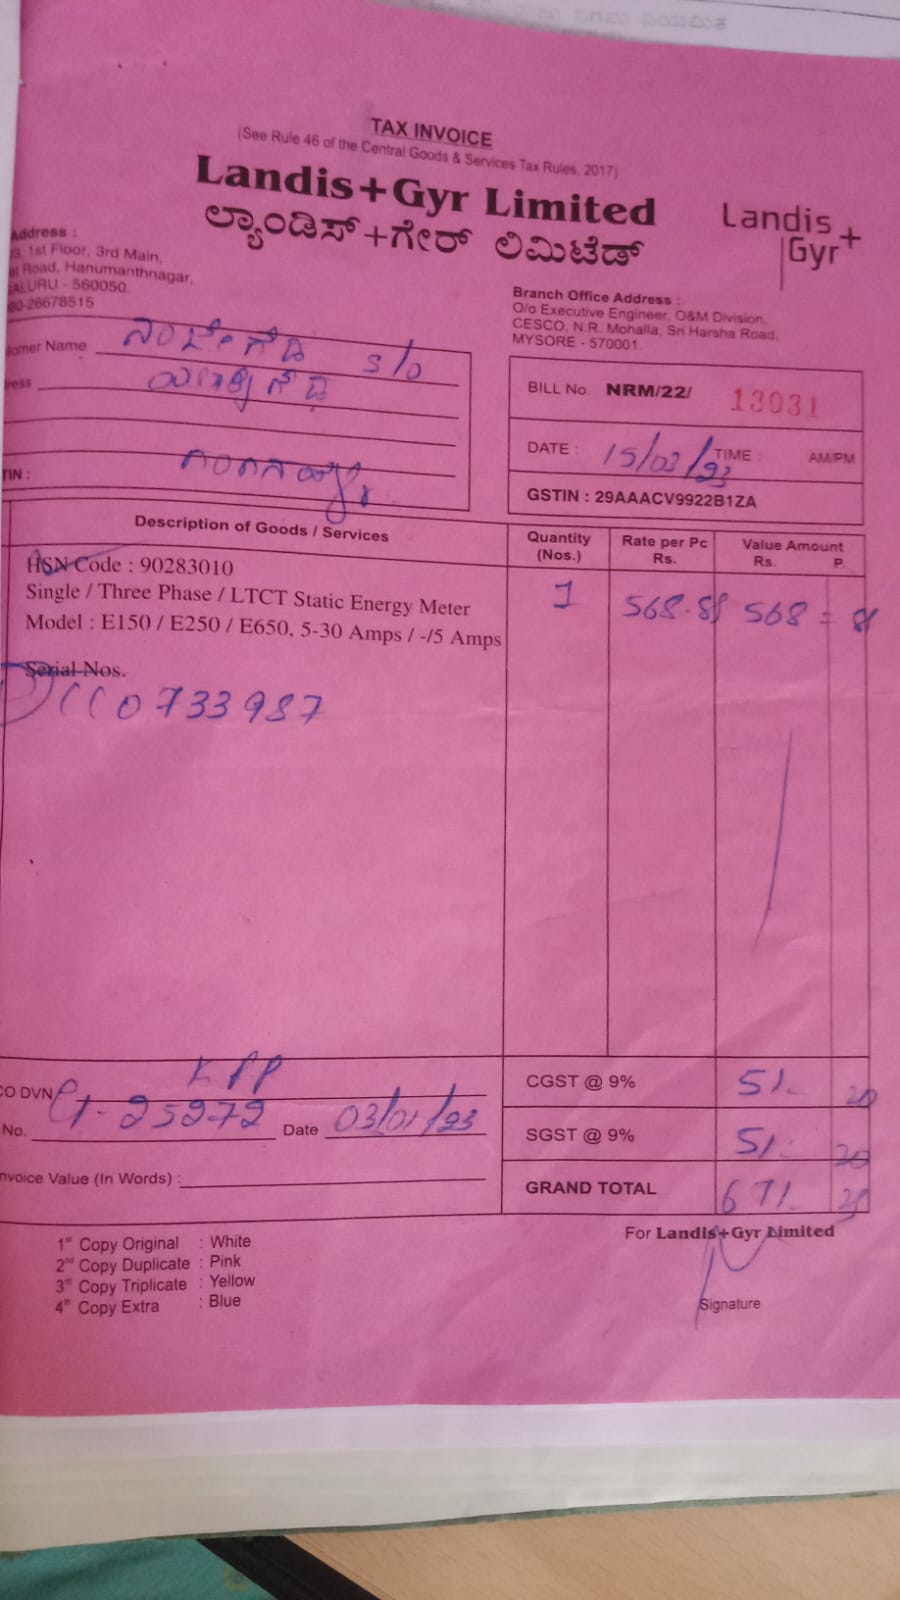 TAX INVOICE
(See Rule 46 of the Central Goods & Services Tax Rules, 2017)
Landis+Gyr Limited
ಲ್ಯಾಂಡಿಸ್+ಗೇರ್ ಲಿಮಿಟೆಡ್
Landis
Gyr+
Address :
1st Floor, 3rd Main,
Road, Hanumanthnagar,
ALURU - 560050.
80-26678515
Branch Office Address :
O/o Executive Engineer, O&M Division,
CESCO, N.R. Mohalla, Sri Harsha Road,
MYSORE - 570001.
tomer Name ನಂಜೇಗೌಡ S/o
ress
TIN :
BILL No. NRM/22/ 13031
DATE : 15/03/23 TIME : AM/PM
GSTIN : 29AAACV9922B1ZA
Description of Goods / Services
Quantity (Nos.)
Rate per Pc Rs.
Value Amount Rs. P.
HSN Code : 90283010
Single / Three Phase / LTCT Static Energy Meter
Model : E150 / E250 / E650, 5-30 Amps / -/5 Amps
1 568.81 568 = 81
Serial Nos.
110733987
CO DVN KPP
No. 25272 Date 03/01/23
nvoice Value (In Words) :
CGST @ 9% 51. 20
SGST @ 9% 51. 20
GRAND TOTAL 671.
1st Copy Original : White
2nd Copy Duplicate : Pink
3rd Copy Triplicate : Yellow
4th Copy Extra : Blue
For Landis+Gyr Limited
Signature